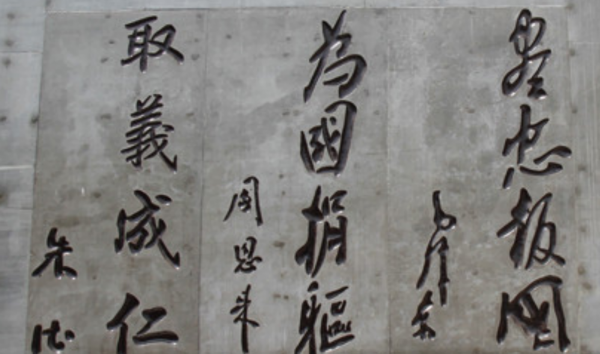 盡忠報國
毛澤東
為國捐軀
周恩来
取義成仁
朱德